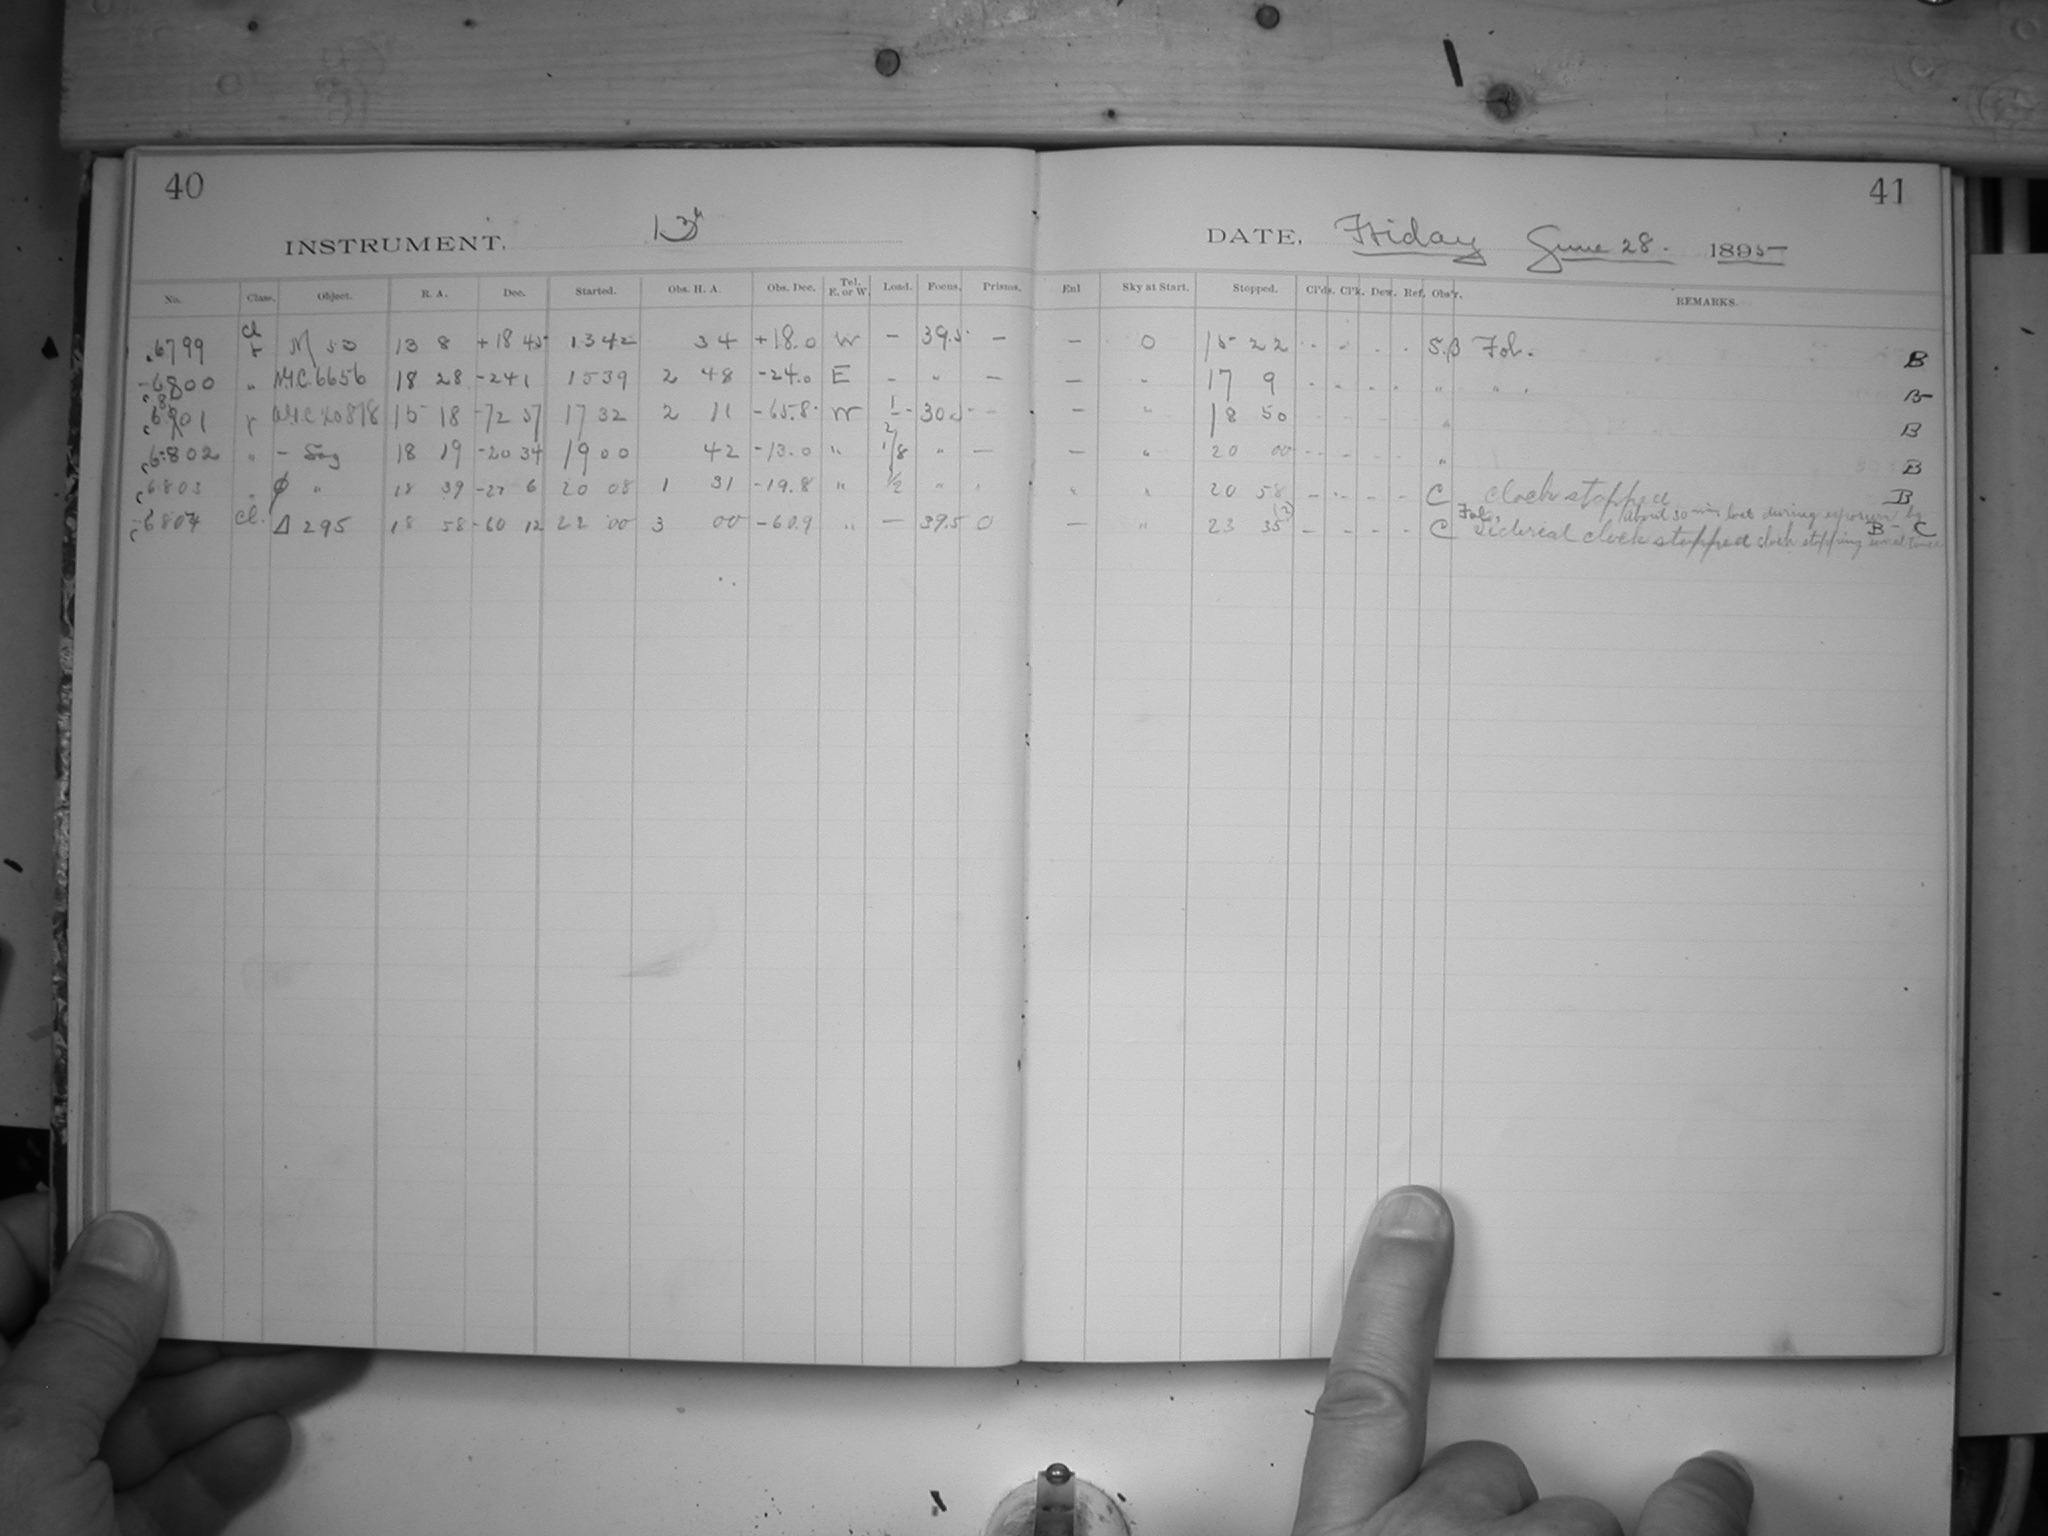 40
41
INSTRUMENT. 13"
DATE, Friday June 28. 1895
No. Class. Object. R. A. Dec. Started. Obs. H. A. Obs. Dec. Tel. E. or W. Load. Focus. Prisms. Enl Sky at Start. Stopped. Cl'ds. Cl'k. Dew. Ref. Obs'r. REMARKS.
6799 Cl r M 53 13 8 +18 45 13 42 34 +18.0 W - 39.5 - - 0 15 22 - - - - S.B Fol. B
6800 " N.G.C. 6656 18 28 -24 1 15 39 2 48 -24.0 E - " - - " 17 9 - - - - " " B
6801 r 20878 15 18 -72 37 17 32 2 11 -65.8 W 1/2 30 - - - " 18 50 - - - - " B
6802 " - Sag 18 19 -20 34 19 00 42 -13.0 " 1/8 " - - " 20 00 - - - - " B
6803 " φ " 18 39 -27 6 20 08 1 31 -19.8 " 1/2 " " " " 20 58 - - - - C Clock stopped B
6804 Cl. Δ 295 18 58 -60 12 22 00 3 00 -60.9 " - 39.5 0 - " 23 35 (?) - - - - C Fol. Sidereal clock stopped about 30 min lost during exposure by clock stopping several times B - C